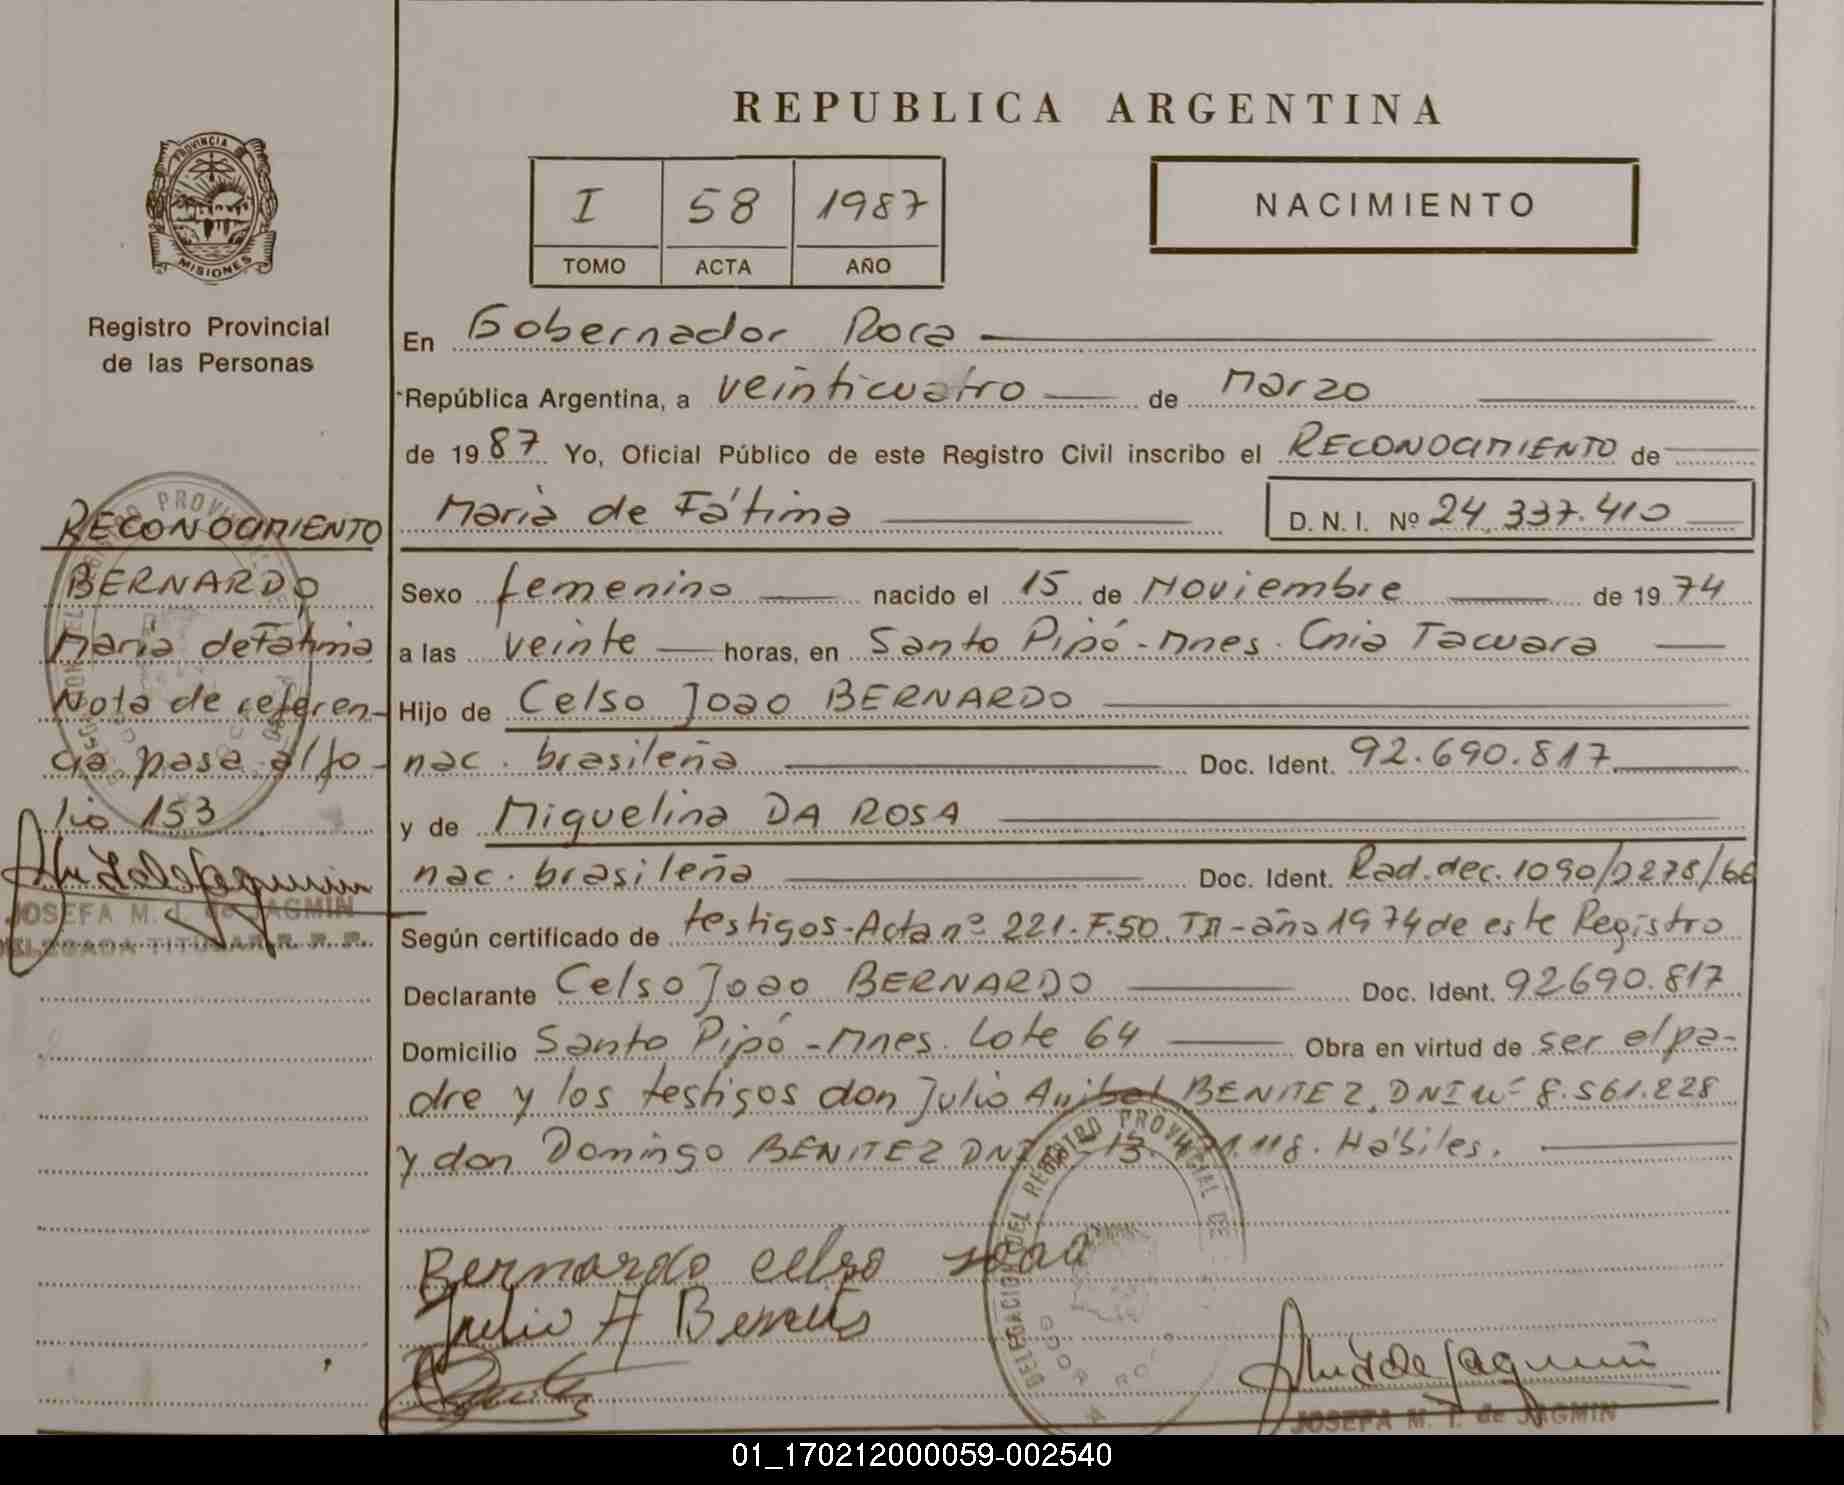 REPUBLICA ARGENTINA
PROVINCIA DE
MISIONES
Registro Provincial
de las Personas
I 58 1987
TOMO ACTA AÑO
NACIMIENTO
En Gobernador Roca
República Argentina, a veinticuatro de Marzo
de 1987 Yo, Oficial Público de este Registro Civil inscribo el RECONOCIMIENTO de
María de Fátima D. N. I. Nº 24.337.410
Sexo femenino nacido el 15 de Noviembre de 1974
a las veinte horas, en Santo Pipó - Mnes. Cnia Tacuara
Hijo de Celso Joao BERNARDO
nac. brasileña Doc. Ident. 92.690.817
y de Miguelina DA ROSA
nac. brasileña Doc. Ident. Rad. dec. 1090/2278/66
Según certificado de testigos - Acta nº 221. F. 50. TII - año 1974 de este Registro
Declarante Celso Joao BERNARDO Doc. Ident. 92690.817
Domicilio Santo Pipó - Mnes. Lote 64 Obra en virtud de ser el pa-
dre y los testigos don Julio Anibal BENITEZ, DNI nº 8.561.228
y don Domingo BENITEZ DNI nº 13. .118. Hábiles.
Bernardo celso Joao
Julio A Benites
DELEGACION DEL REGISTRO PROVINCIAL DE
GDOR ROCA
JOSEFA M. T. de JAGMIN
RECONOCIMIENTO
BERNARDO
María de Fátima
Nota de referen-
cia pasa al fo-
lio 153
JOSEFA M. T. de JAGMIN
DELEGADA TITULAR R. P. P.
01_170212000059-002540